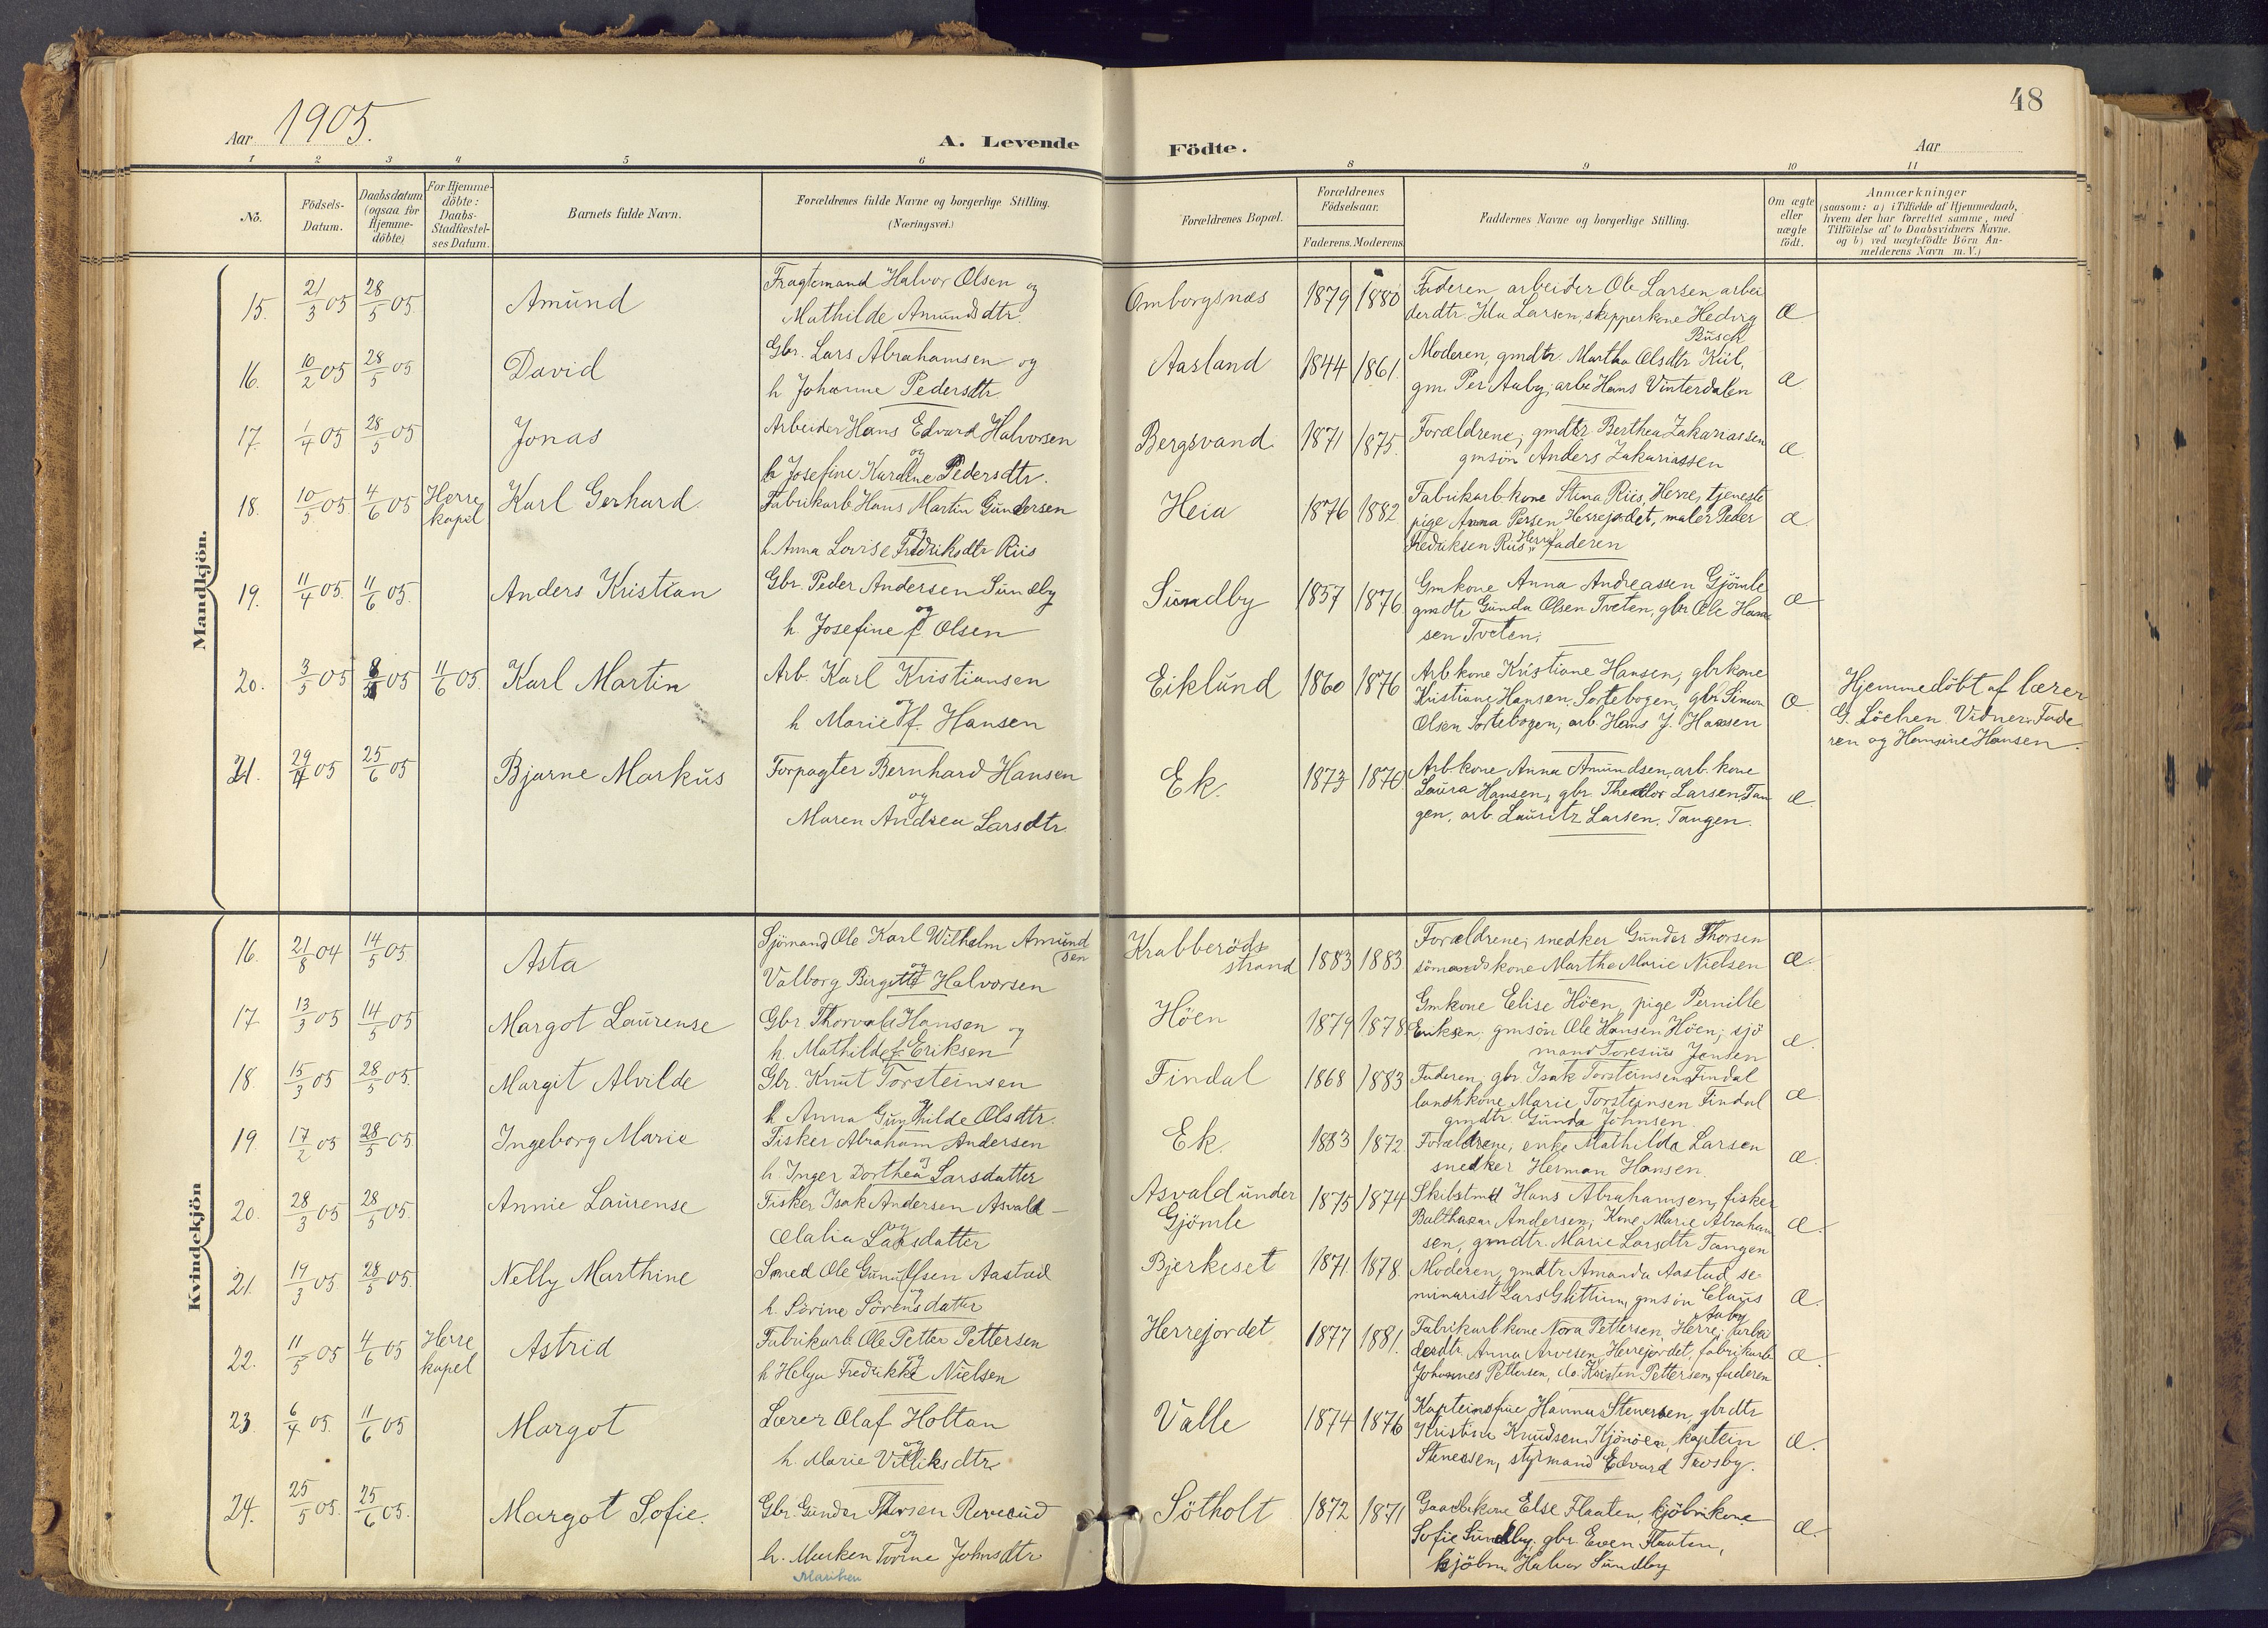 48
Aar 1905.
A. Levende Födte.
Aar
1 2 3 4 5 6 8 9 10 11
No.
Födsels-Datum.
Daabsdatum (ogsaa for Hjemme-döbte)
For Hjemme-döbte: Daabs-Stadfæstel-ses Datum.
Barnets fulde Navn.
Forældrenes fulde Navne og borgerlige Stilling.
(Næringsvei.)
Forældrenes Bopæl.
Forældrenes Födselsaar.
Faderens. Moderens
Faddernes Navne og borgerlige Stilling.
Om ægte eller uægte födt.
Anmærkninger
(saasom: a) i Tilfælde af Hjemmedaab,
hvem der har forrettet samme, med
Tilföielse af to Daabsvidners Navne.
og b) ved uægtefödte Börn An-
melderens Navn m. V.)
Mandkjön.
15. 21/3 05 28/5 05. Amund
Fragtemand Halvor Olsen og
Mathilde Amundsdtr.
Omborgsnæs 1879 1880
Faderen arbeider Ole Larsen arbei
derdtr. Ida Larsen, skipperkone Hedvig
Busch
Æ
16. 10/2 05 28/5 05 David
Gbr. Lars Abrahamsen og
h Johanne Pedersdtr.
Aasland 1844 1861.
Moderen, gmdtr. Martha Olsdtr Kiil,
gm. Per Aaby; arb. Hans Vinterdalen
æ
17. 1/4 05 28/5 05 Jonas
Arbeider Hans Edvard Halvorsen
og
h Josefine Karoline Pedersdtr.
Bergsvand. 1871 1875.
Forældrene; gmdtr. Berthea Zakariassen
gmsön Anders Zakariassen
Æ
18. 10/5 05 4/6 05 Herre kapel Karl Gerhard.
Fabrikarb Hans Martin Gundersen
og
h. Anna Lovise Fredriksdtr Riis
Heia 1876 1882
Fabrikarbkone Stina Riis, Herre, tjeneste
pige Anna Persen Herrejordet, maler Peder
Fredriksen Riis, Herre, faderen
Æ
19. 11/4 05. 11/6 05. Anders Kristian
Gbr. Peder Andersen Sundby
og
h. Josefine f. Olsen
Sundby 1857 1876
Gmkone Anna Andreassen Gjömle
gmdtr Gunda Olsen Tveten, gbr Ole Han
sen Tveten;
Æ
20. 3/5 05 05 11/6 05. Karl Martin
Arb. Karl Kristiansen
og
h Marie f. Hansen
Eiklund 1860 1876
Arbkone Kristiane Hansen, gbrkone
Kristiane Hansen Sortebogen, gbr Simon
Olsen Sortebogen, arb. Hans J. Hansen
Æ
Hjemmedöbt af lærer
G. Löchen. Vidner: Fade
ren og Hansine Hansen.
21. 29/4 05 25/6 05 Bjarne Markus
Forpagter Bernhard Hansen
og
Maren Andrea Larsdtr.
Ek. 1873 1870.
Arb.kone Anna Amundsen, arb. kone
Laura Hansen, gbr. Theodor Larsen, Tan
gen, arb. Lauritz Larsen. Tangen.
Æ.
Kvindekjön
16. 21/8 04 14/5 05. Asta
Sjömand Ole Karl Wilhelm Amund
sen
og
Valborg Birgitte Halvorsen
Krabberöds
strand 1883 1883
Forældrene; snedker Gunder Thorsen
sömandskone Marthe Marie Nielsen
Æ.
17 13/3 05 14/5 05 Margot Laurense
Gbr. Thorvald Hansen og
h. Mathilde f. Eriksen
Höen 1879 1878
Gmkone Elise Höen, pige Pernille
Eriksen. gmsön Ole Hansen Höen; sjö
mand Toresius Jensen
Æ.
18. 15/3 05 28/5 05. Margit Alvilde
Gbr. Knut Torsteinsen
h Anna Gunhilde Olsdtr.
Findal 1868 1883
Faderen, gbr. Isak Torsteinsen Findal
landhkone Marie Torsteinsen Findal
gmdtr Gunda Johnsen.
Æ
19 17/2 05 28/5 05. Ingeborg Marie
Fisker Abraham Andersen
og
h Inger Dorthea Larsdatter
Ek. 1883 1872.
Forældrene; enke Mathilde Larsen
snedker Herman Hansen.
Æ.
20. 28/3 05 28/5 05. Annie Laurense
Fisker Isak Andersen Asvald -
og
Olalia Larsdatter
Asvald under
Gjömle 1875 1874
Skibstmd Hans Abrahamsen, fisker
Balthazar Andersen, Kone Marie Abraham
sen, gmdtr. Marie Larsdtr Tangen
Æ.
21. 19/3 05. 28/5 05. Nelly Marthine
Smed Ole Gunulfsen Aastad
og
h. Sörine Sörensdatter
Bjerkeset 1871. 1878.
Moderen, gmdtr Amanda Aastad se
minarist Lars Glittum, gmsön Claus
Aaby
Æ.
22. 11/5 05 4/6 05 Herre kapel Astrid
Fabrikarb. Ole Petter Pettersen
og
h Helga Fredrikke Nielsen
Herrejordet 1877 1881.
Fabrikarbkone Nora Pettersen, Herre; arbei
derdtr. Anna Arvesen Herrejordet, fabrikarb
Johannes Pettersen, do. Kristen Pettersen, faderen
Æ.
23. 6/4 05. 11/6 05 Margot
Lærer Olaf Holtan
og
h. Marie Villiksdtr.
Valle 1874 1876
Kapteinsfrue Hanna Stenersen, gbrdtr
Kristine Knudsen Kjönöen, kaptein
Stenersen, styrmand Edvard Trosby.
Æ.
24. 25/5 05. 25/6 05. Margot Sofie.
Gbr. Gunder Thorsen Rerecud
og
h. Marken Torine Johnsdtr
Marthea
Sötholt 1872 1871
Gaardbrkone Else Flaaten, kjöbmkone
Sofie Sundby, gbr. Even Flaaten,
kjöbm. Halvor Sundby
Æ.